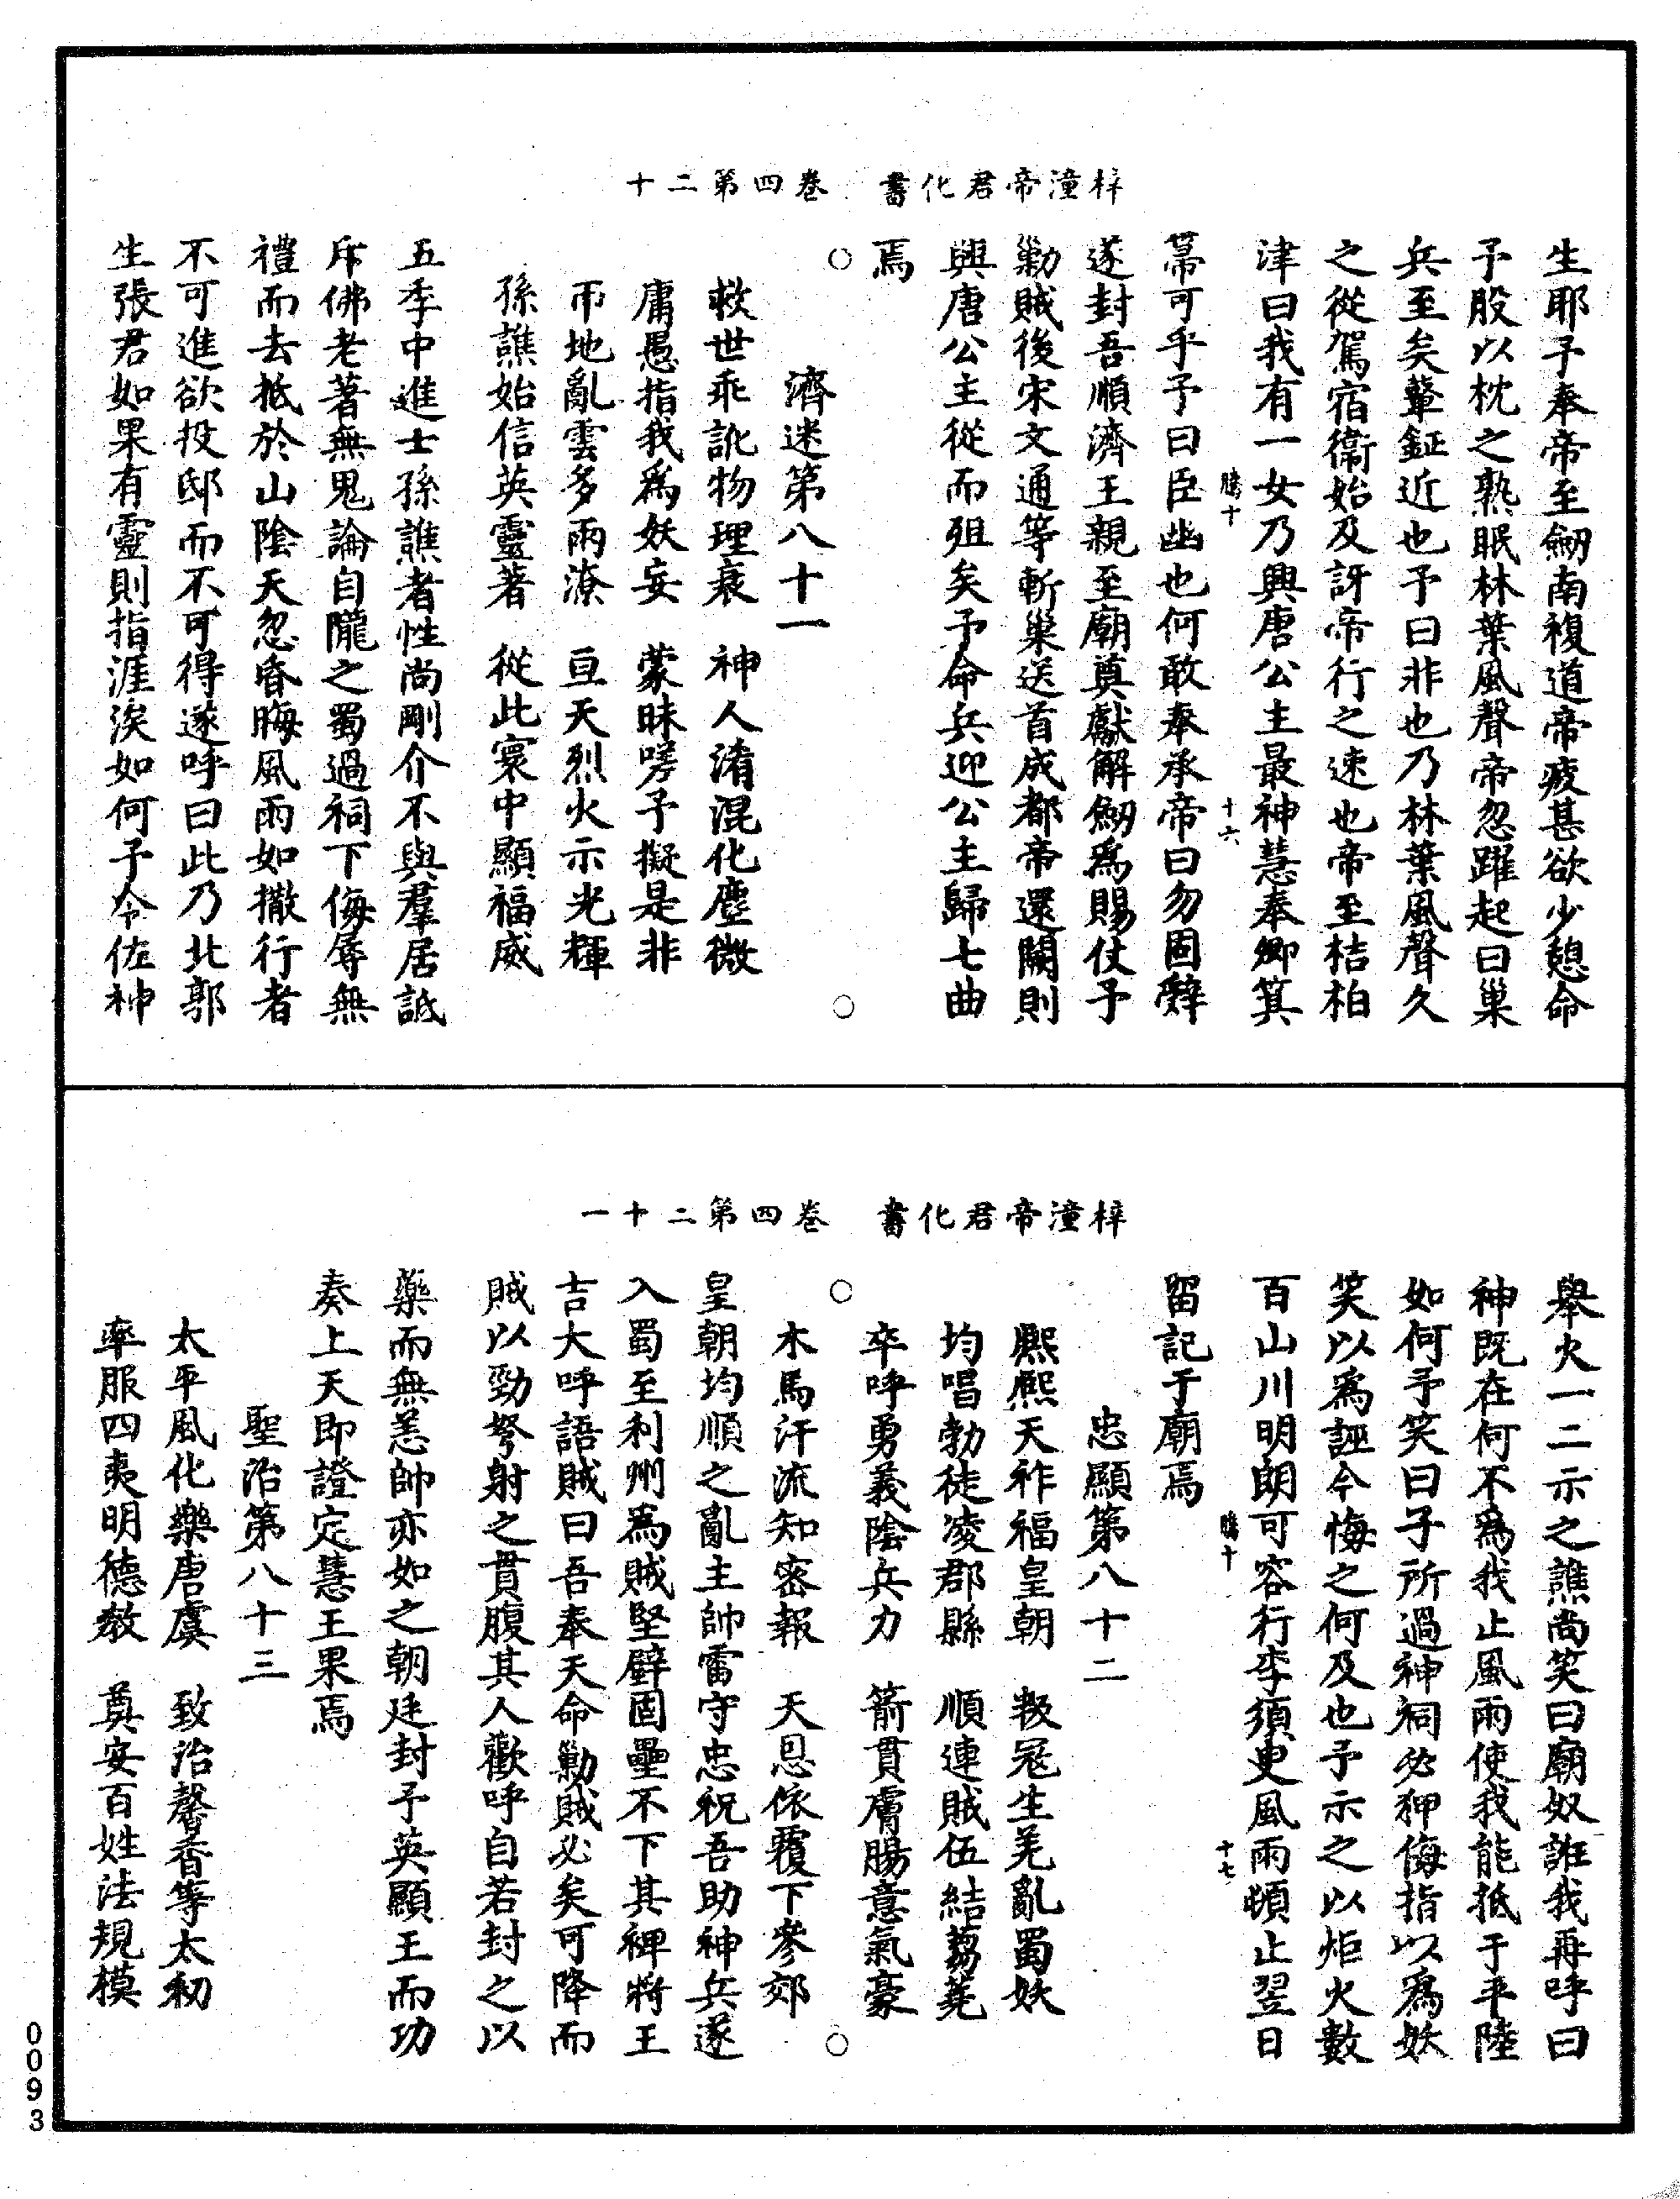 梓潼帝君化書　卷四第二十
生耶予奉帝至劒南複道帝疲甚欲少憩命
予股以枕之熟眠林葉風聲帝忽躍起曰巢
兵至矣鼙鉦近也予曰非也乃林葉風聲久
之從駕宿衞始及訝帝行之速也帝至桔柏
津曰我有一女乃興唐公主最神慧奉卿箕
騰十　十六
箒可乎予曰臣幽也何敢奉承帝曰勿固辭
遂封吾順濟王親至廟奠獻解劒爲賜仗予
勦賊後宋文通等斬巢送首成都帝還闕則
興唐公主從而殂矣予命兵迎公主歸七曲
焉
○　○
濟迷第八十一
救世乖訛物理衰　神人淆混化塵微
庸愚指我爲妖妄　蒙昧嗟予擬是非
帀地亂雲多雨潦　亘天烈火示光輝
孫譙始信英靈著　從此寰中顯福威
五季中進士孫譙者性尚剛介不與羣居詆
斥佛老著無鬼論自隴之蜀過祠下侮辱無
禮而去抵於山陰天忽昏晦風雨如撒行者
不可進欲投邸而不可得遂呼曰此乃北郭
生張君如果有靈則指涯涘如何予令佐神
梓潼帝君化書　卷四第二十一
舉火一二示之譙尚笑曰廟奴誑我再呼曰
神既在何不爲我止風雨使我能抵于平陸
如何予笑曰子所過神祠必狎侮指以爲妖
笑以爲誣今悔之何及也予示之以炬火數
百山川明朗可容行李須臾風雨頓止翌日
騰十　十七
留記于廟焉
忠顯第八十二
熙熙天祚福皇朝　叛冦生羌亂蜀妖
均唱勃徒凌郡縣　順連賊伍結蒭蕘
卒呼勇義陰兵力　箭貫膚腸意氣豪
木馬汗流知密報　天恩依覆下參郊
○　○
皇朝均順之亂主帥雷守忠祝吾助神兵遂
入蜀至利州爲賊堅壁固壘不下其裨將王
吉大呼語賊曰吾奉天命勦賊必矣可降而
賊以勁弩射之貫腹其人歡呼自若封之以
藥而無恙帥亦如之朝廷封予英顯王而功
奏上天即證定慧王果焉
聖治第八十三
太平風化樂唐虞　致治馨香等太初
率服四夷明德教　奠安百姓法規模
0093